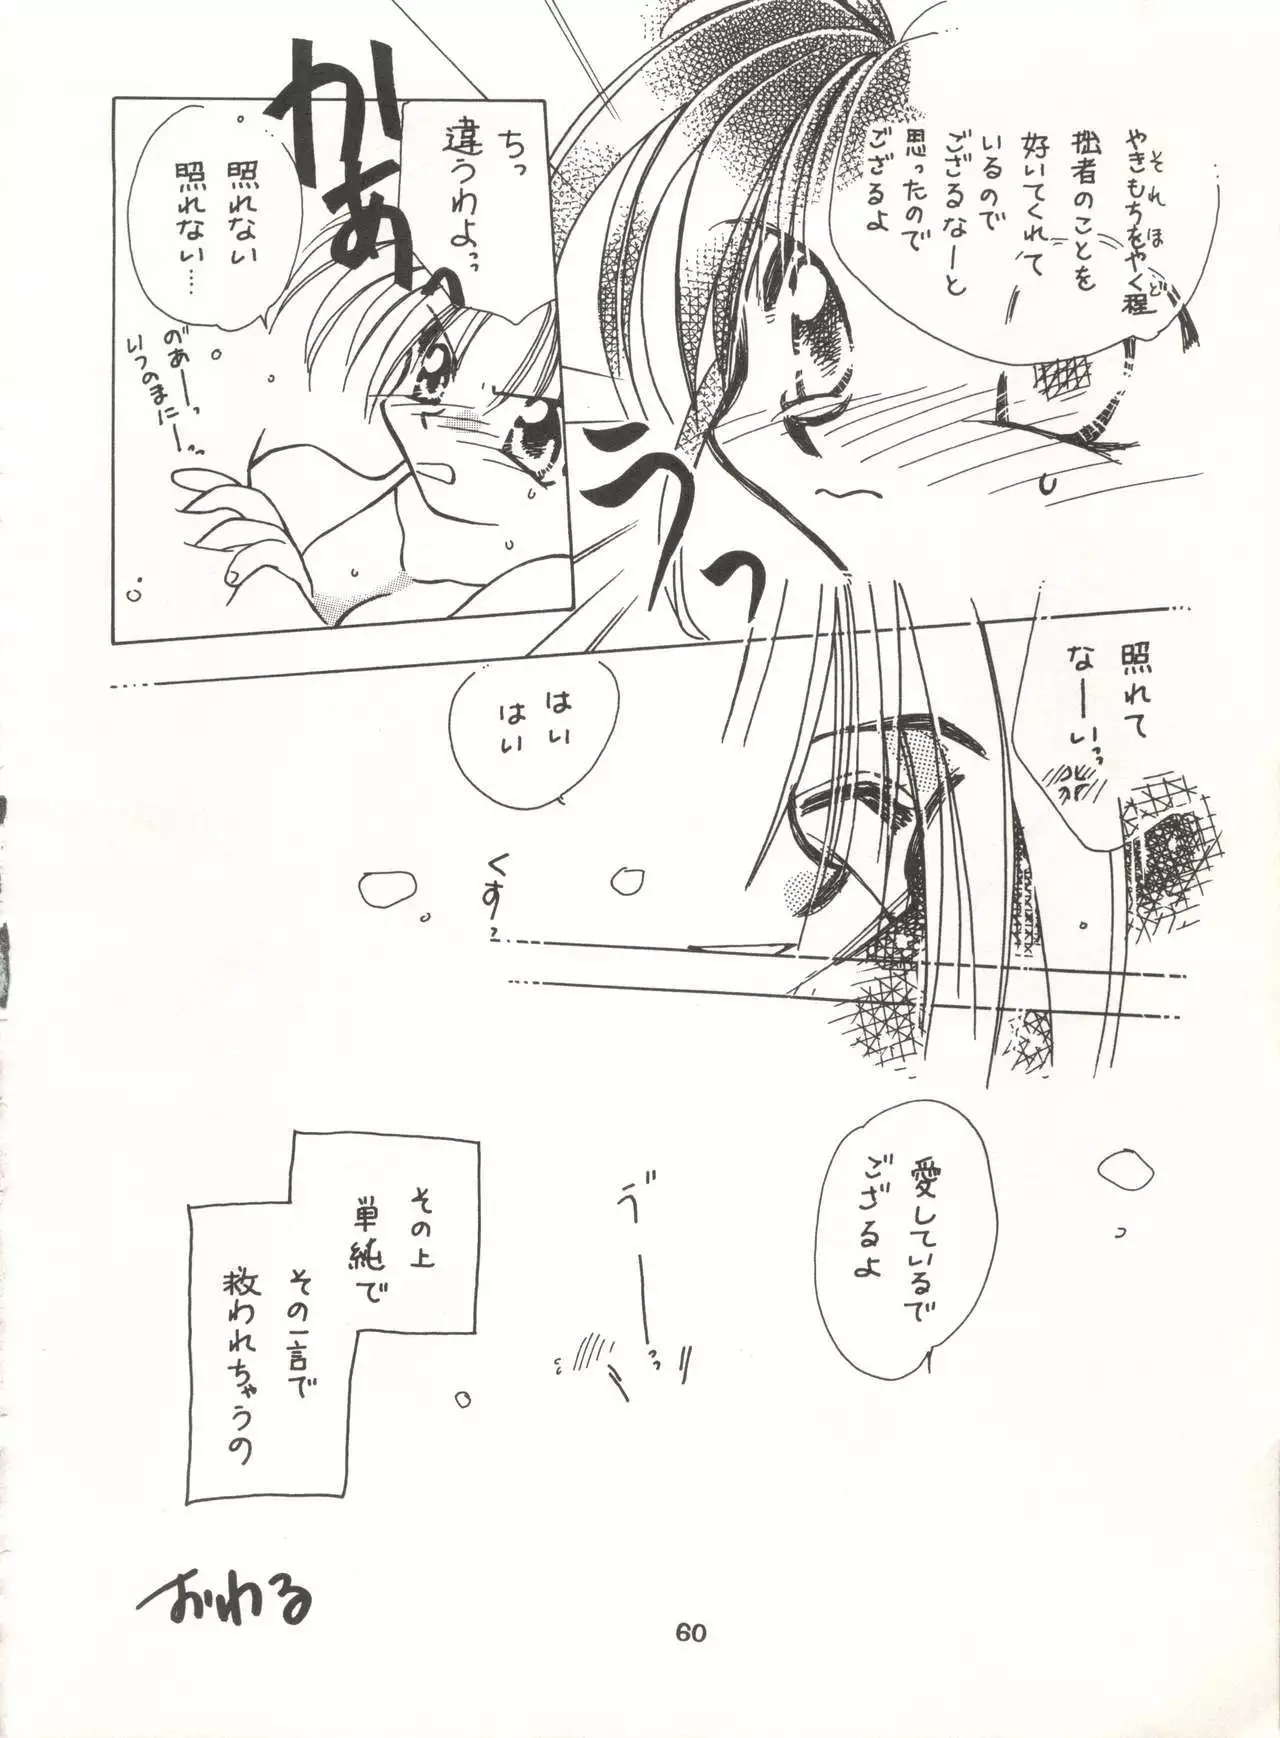 やきもちをやく程
それほど
拙者のことを
好いてくれて
いるので
ござるなーと
思ったので
ござるよ
うっ
かあっ
ちっ
違うわよっっ
照れない
照れない…
のあーっ
いつのまにーっ
照れて
なーいっっ
はい
はい
くすっ
愛しているで
ござるよ
ゔーっっ
その上
単純で
その一言で
救われちゃうの
おわる
60